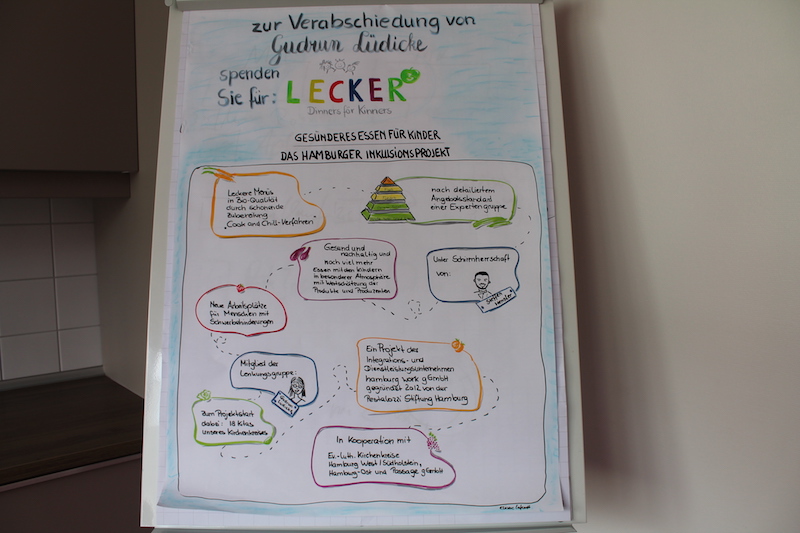 zur Verabschiedung von
Gudrun Lüdicke
spenden
Sie für:
LECKER
Dinners for Kinners
GESÜNDERES ESSEN FÜR KINDER
DAS HAMBURGER INKLUSIONSPROJEKT
Leckere Menüs
in Bio-Qualität
durch schonende
Zubereitung
"Cook and Chill-Verfahren"
nach detailiertem
Angebotsstandard
einer Expertengruppe
Gesund und
nachhaltig und
noch viel mehr
Essen mit den Kindern
in besonderer Atmosphäre
mit Wertschätzung der
Produkte und Produzenten
Unter Schirmherrschaft
von:
Steffen
Henssler
Neue Arbeitsplätze
für Menschen mit
Schwerbehinderungen
Ein Projekt des
Integrations- und
Dienstleistungsunternehmen
hamburg work gGmbH
gegründet 2012 von der
Pestalozzi Stiftung Hamburg
Mitglied der
Lenkungsgruppe:
Gudrun
Lüdicke
Zum Projektstart
dabei: 18 Kitas
unseres Kirchenkreises
In Kooperation mit
Ev.-luth. Kirchenkreise
Hamburg West/Südholstein,
Hamburg-Ost und Passage gGmbH